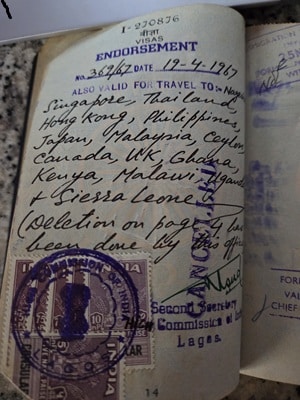 I-270876
वीज़ा
VISAS
ENDORSEMENT
No. 369/67 DATE 19-4-1967
ALSO VALID FOR TRAVEL TO:-
Singapore, Thailand
Hong Kong, Philippines,
Japan, Malaysia, Ceylon
Canada, U.K, Ghana
Kenya, Malawi, Uganda
& Sierra Leone.
(Deletion on page 4 has
been done by this office
CANCELLED
Second Secretary
Commission of
Lagos.
COMMISSION OF INDIA
LAGOS
INDIA
14
No.
FOR
VAL
CHIEF